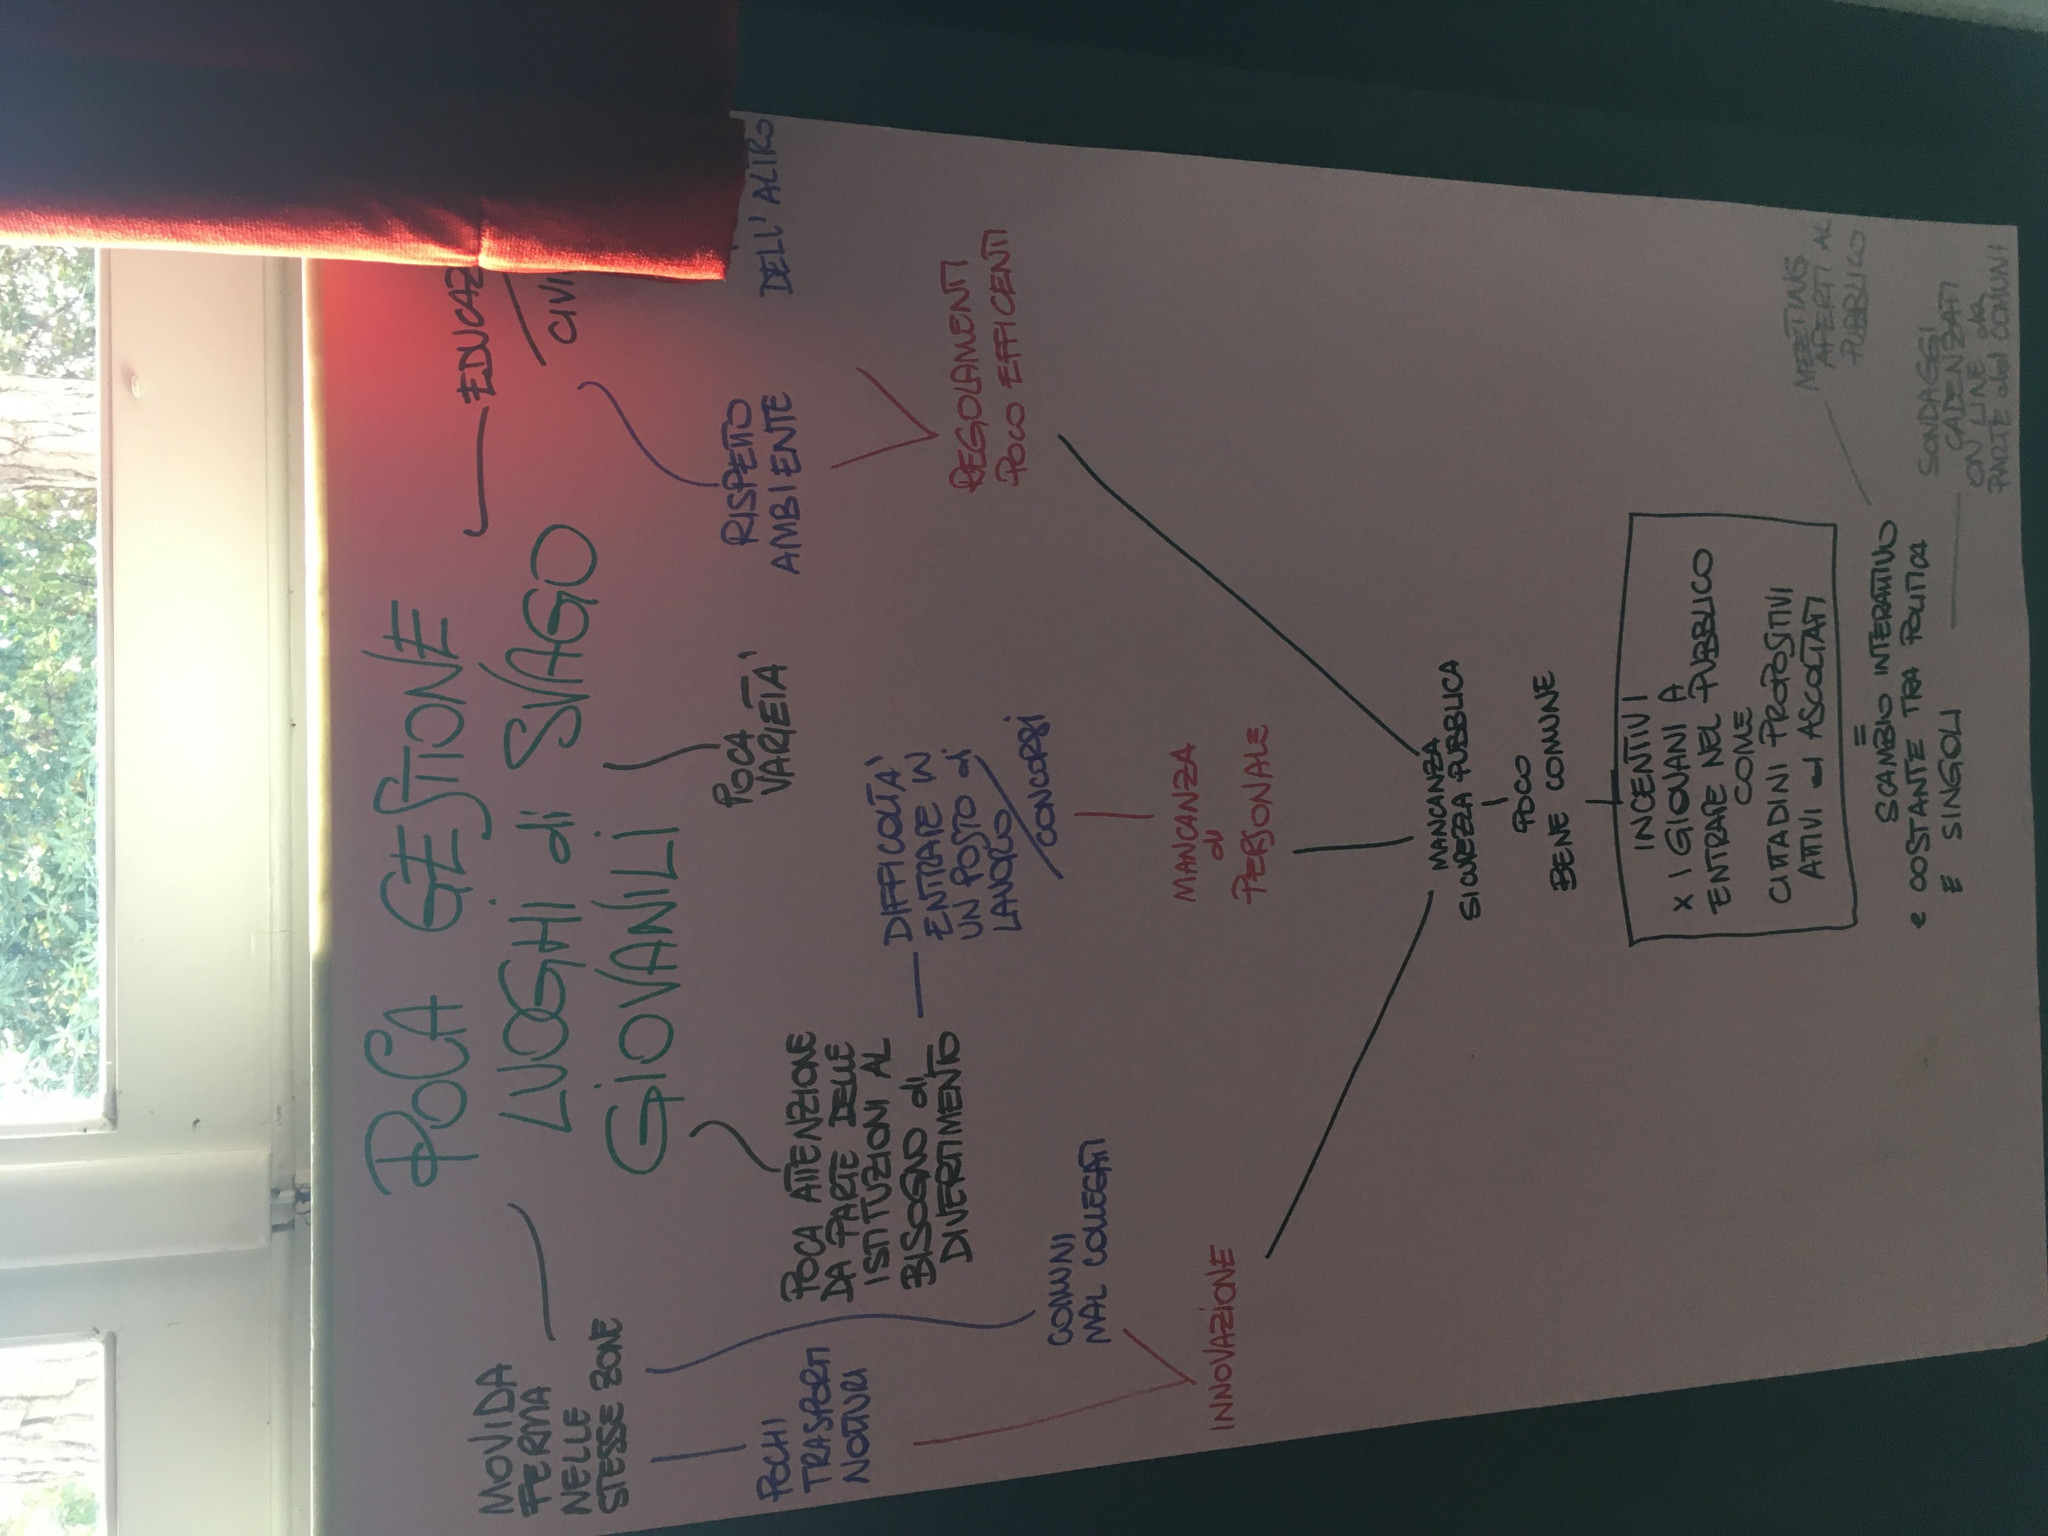 POCA GESTIONE
LUOGHI di SVAGO
GIOVANILI
MOVIDA
FERMA
NELLE
STESSE ZONE
POCHI
TRASPORTI
NOTTURI
COMUNI
MAL COLLEGATI
INNOVAZIONE
POCA ATTENZIONE
DA PARTE DELLE
ISTITUZIONI AL
BISOGNO di
DIVERTIMENTO
DIFFICOLTA'
ENTRARE IN
UN POSTO di
LAVORO / CONCORSI
MANCANZA
di
PERSONALE
POCA
VARIETA'
RISPETTO
AMBIENTE
DELL'ALTRO
REGOLAMENTI
POCO EFFICENTI
MANCANZA
SICUREZZA PUBBLICA
POCO
BENE COMUNE
INCENTIVI
X I GIOVANI A
ENTRARE NEL PUBBLICO
COME
CITTADINI PROPOSITIVI
ATTIVI ed ASCOLTATI
=
SCAMBIO INTERATTIVO
e COSTANTE TRA POLITICA
E SINGOLI
MEETING
APERTI AL
PUBBLICO
SONDAGGI
CADENZATI
ON LINE da
PARTE dei COMUNI